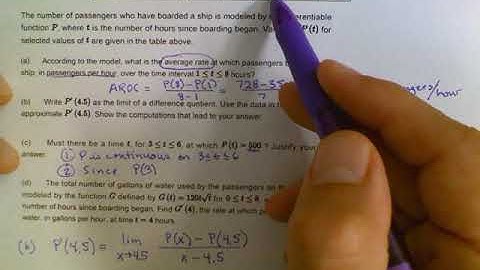 The number of passengers who have boarded a ship is modeled by differentiable
function P, where t is the number of hours since boarding began. P(t) for
selected values of t are given in the table above.
(a) According to the model, what is the average rate at which passengers
ship, in passengers per hour, over the time interval 1 ≤ t ≤ 8 hours?
AROC = P(8) - P(1) / 8 - 1 = 728 - 35 / 7 /hour
(b) Write P'(4.5) as the limit of a difference quotient. Use the data in
approximate P'(4.5). Show the computations that lead to your answer.
(c) Must there be a time t, for 3 ≤ t ≤ 6, at which P(t) = ? Justify your
answer.
① P is continuous on 3≤t≤6
② Since P(3)
(d) The total number of gallons of water used by the passengers on
modeled by the function G defined by G(t) = for 0 ≤ t ≤
number of hours since boarding began. Find G'(4), the rate at which
water, in gallons per hour, at time t = 4 hours.
(b) P'(4.5) = lim x→4.5 P(x) - P(4.5) / x - 4.5